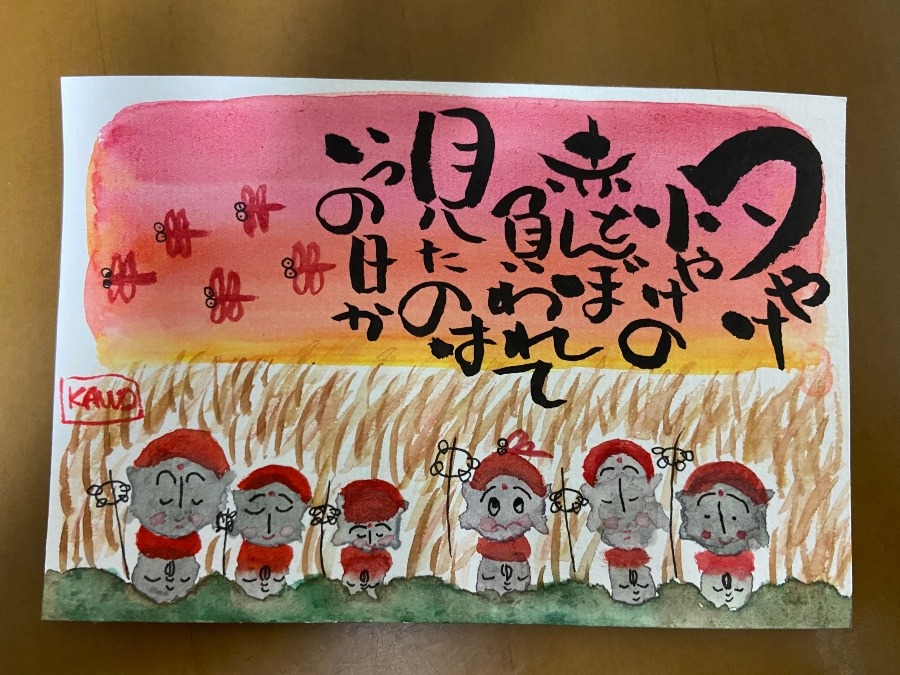 夕やけ
小やけの
赤とんぼ
負いわれて
見たのは
いつの日か